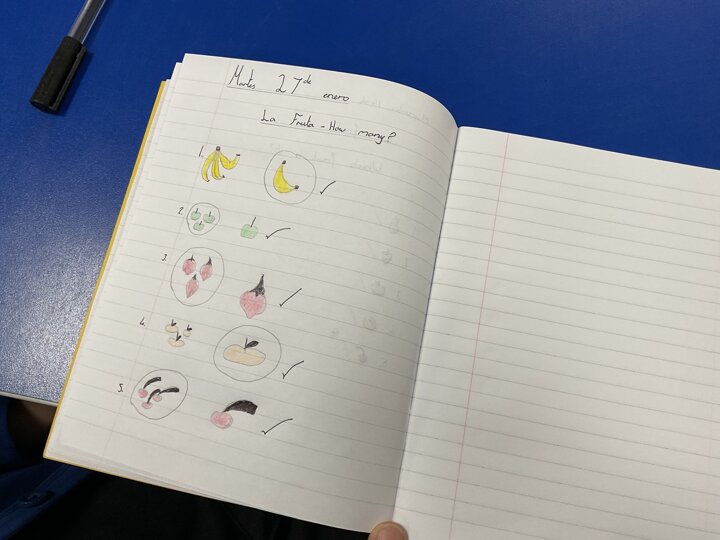 Martes 27 de enero
La Fruta - How many?
1.
2.
3.
4.
5.